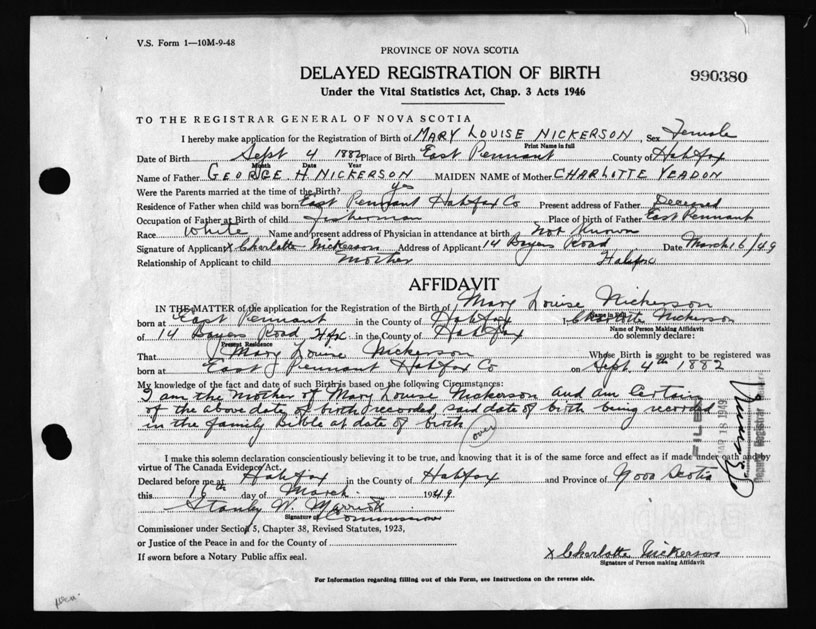 V.S. Form 1—10M-9-48
PROVINCE OF NOVA SCOTIA
DELAYED REGISTRATION OF BIRTH
990380
Under the Vital Statistics Act, Chap. 3 Acts 1946
TO THE REGISTRAR GENERAL OF NOVA SCOTIA
I hereby make application for the Registration of Birth of MARY LOUISE NICKERSON, Sex Female
Print Name in full
Date of Birth Sept 4 1882 Place of Birth East Pennant County of Halifax
Month Date Year
Name of Father GEORGE H. NICKERSON MAIDEN NAME of Mother CHARLOTTE YEADON
Were the Parents married at the time of the Birth? yes
Residence of Father when child was born East Pennant Halifax Co Present address of Father Deceased
Occupation of Father at Birth of child fisherman Place of birth of Father East Pennant
Race White Name and present address of Physician in attendance at birth Not Known
Signature of Applicant x Charlotte Nickerson Address of Applicant 14 Bayers Road Date March 16/49
Relationship of Applicant to child Mother Halifax
AFFIDAVIT
IN THE MATTER of the application for the Registration of the Birth of Mary Louise Nickerson
born at East Pennant in the County of Halifax I, Charlotte Nickerson
Name of Person Making Affidavit
of 14 Bayers Road Hfx in the County of Halifax do solemnly declare:
Present Residence
That Mary Louise Nickerson Whose Birth is sought to be registered was
born at East Pennant Halifax Co on Sept. 4th 1882
My knowledge of the fact and date of such Birth is based on the following Circumstances:
I am the Mother of Mary Louise Nickerson and am certain
of the above date of birth recorded, said date of birth being recorded
in the family Bible at date of birth (over)
FILED
MAR 18 1949
Deputy Registrar
I make this solemn declaration conscientiously believing it to be true, and knowing that it is of the same force and effect as if made under oath and by
virtue of The Canada Evidence Act.
Declared before me at Halifax in the County of Halifax and Province of Nova Scotia
this 16th day of March 1949
Stanley W.
Signature of Commissioner
Commissioner under Section 5, Chapter 38, Revised Statutes, 1923,
or Justice of the Peace in and for the County of
If sworn before a Notary Public affix seal.
x Charlotte Nickerson
Signature of Person making Affidavit
For Information regarding filling out of this Form, see Instructions on the reverse side.